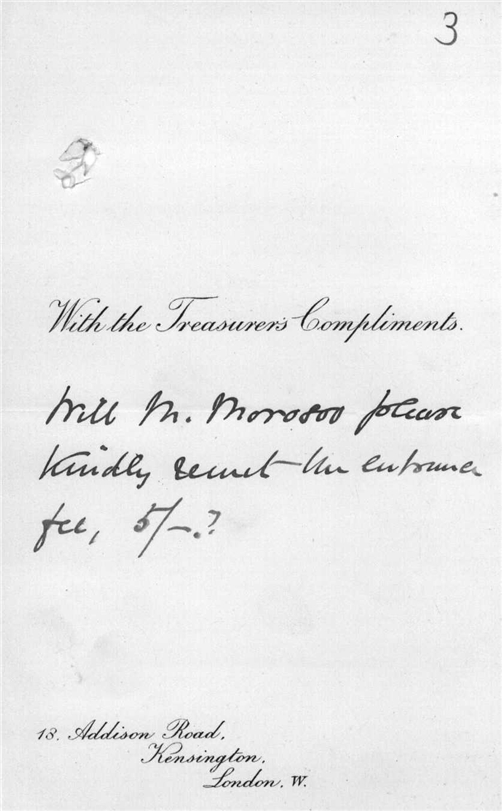 3
With the Treasurer's Compliments.
Will M. Morosoo please
kindly remit the entrance
fee, 5/-.?
13, Addison Road,
Kensington,
London, W.